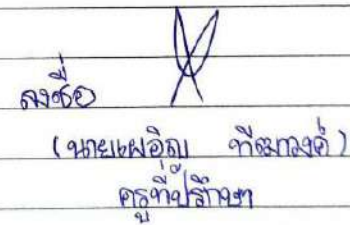 ลงชื่อ
(นายเผอิญ ทีฆาวงค์)
ครูที่ปรึกษา